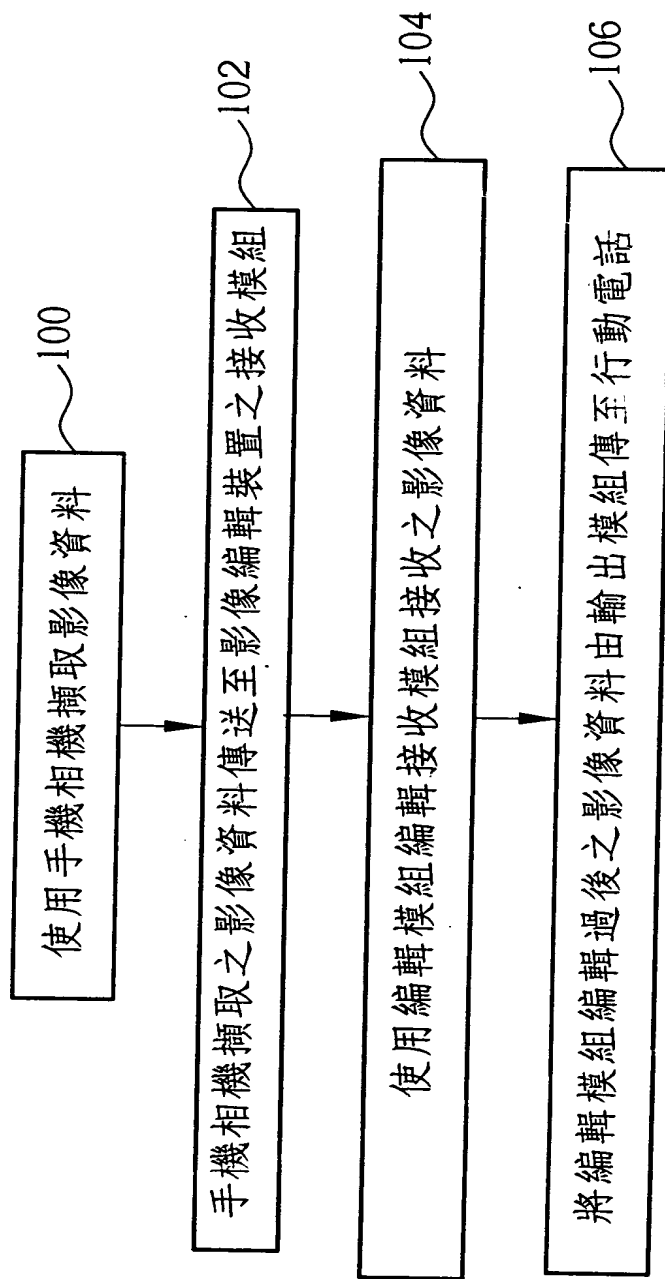 使用手機相機擷取影像資料
100
手機相機擷取之影像資料傳送至影像編輯裝置之接收模組
102
使用編輯模組編輯接收模組接收之影像資料
104
將編輯模組編輯過後之影像資料由輸出模組傳至行動電話
106